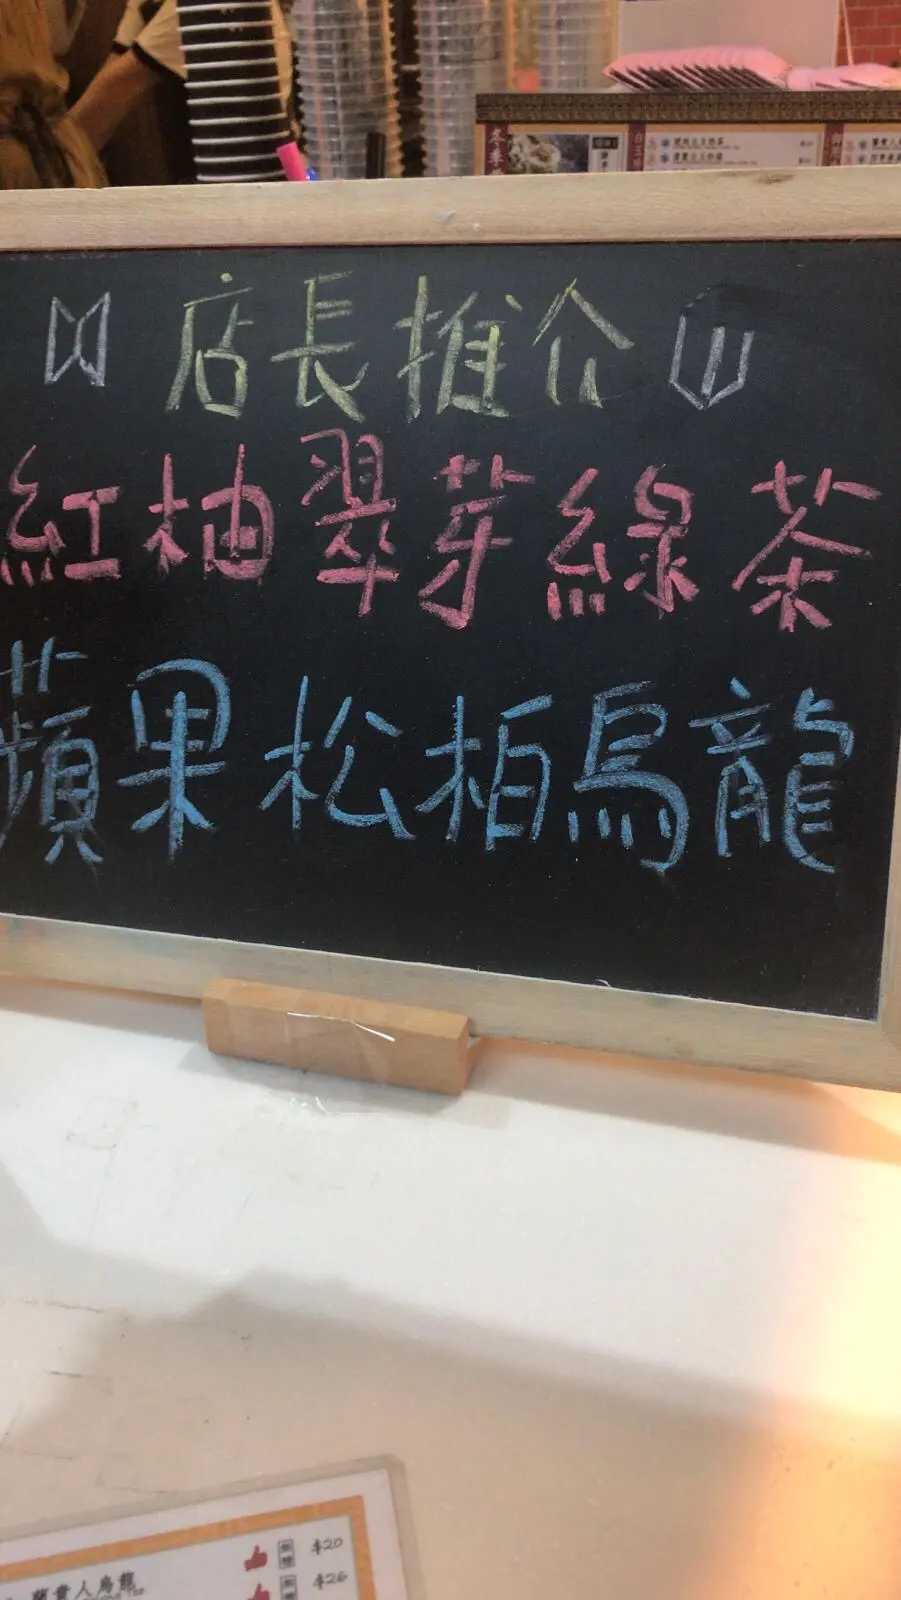 冬季
店長推介
紅柚翠芽綠茶
蘋果松柏烏龍
$20
蘭貴人烏龍
$26